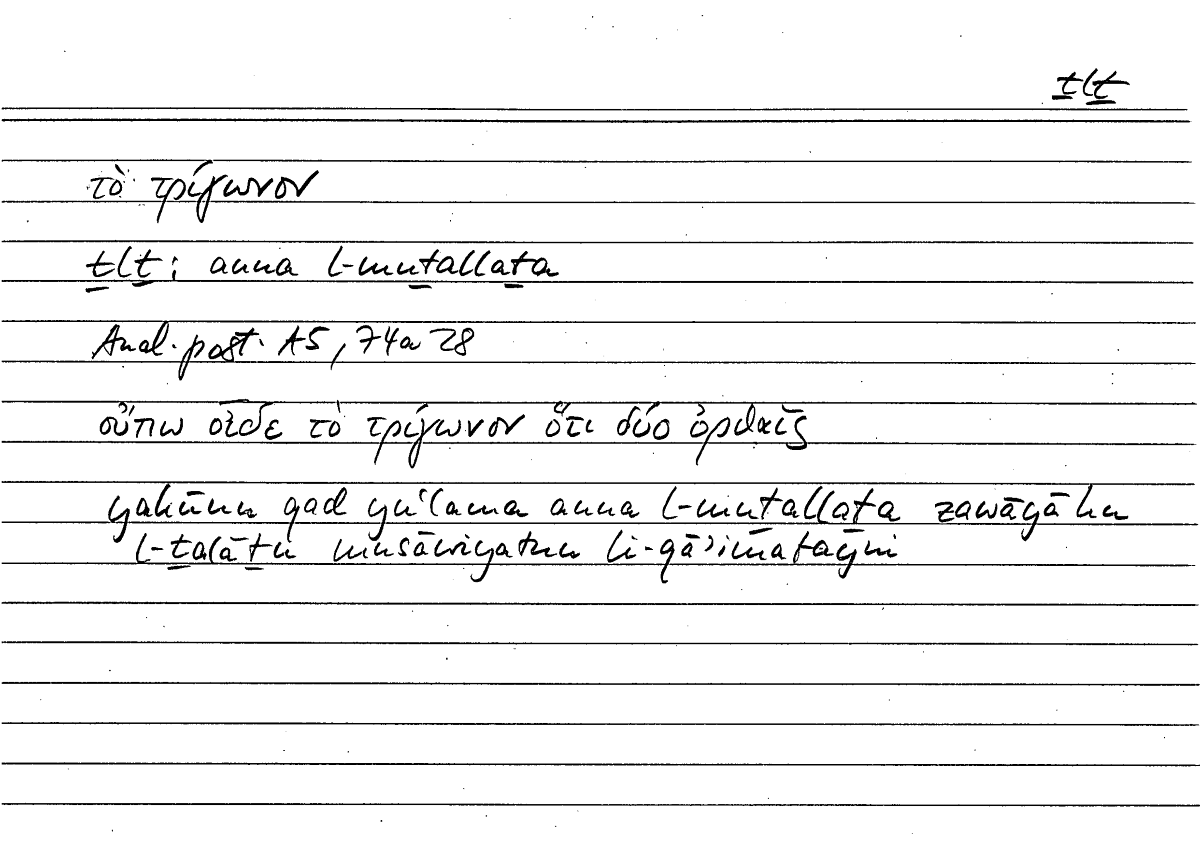 ṯlṯ
τὸ τρίγωνον
ṯlṯ: anna l-muṯallaṯa
Anal. post. A5, 74a 28
οὔπω οἶδε τὸ τρίγωνον ὅτι δύο ὀρθαῖς
yakūnu qad yuʿlama anna l-muṯallaṯa zawāyāhu
l-ṯalāṯu musāwiyatun li-qāʾimatayni